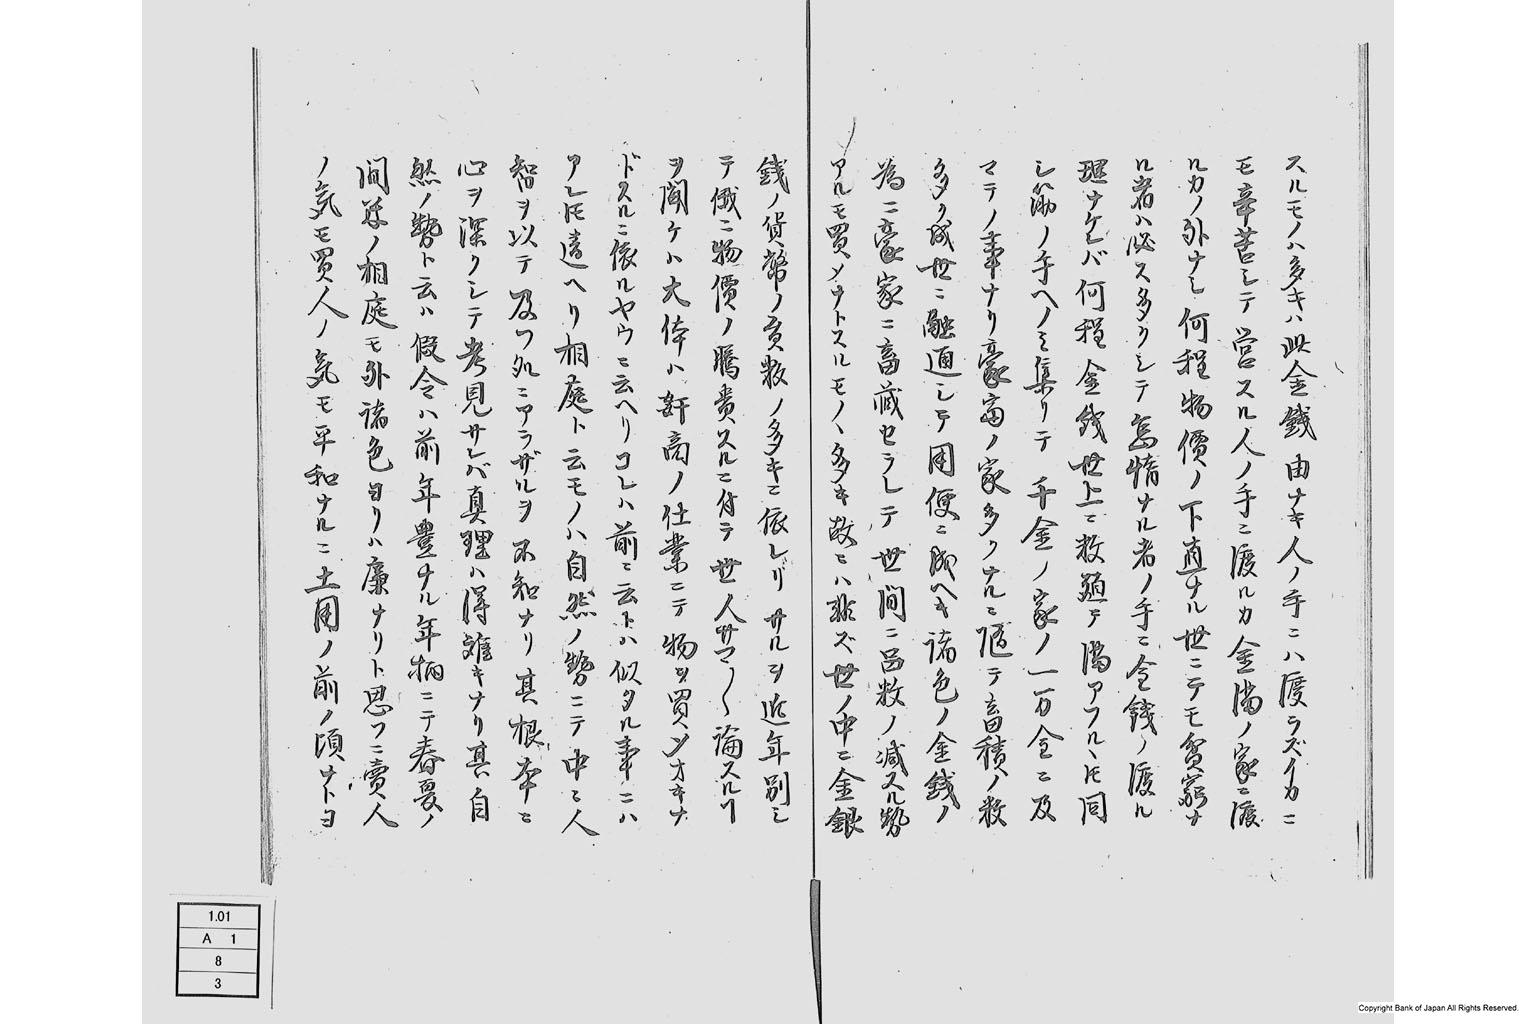 スルモノハ多キハ此金銭由ナキ人ノ手ニハ渡ラズイカニ
モ辛苦シテ営スル人ノ手ニ渡ルカ金満ノ家ニ渡
ルカノ外ナシ何程物價ノ下直ナル世ニテモ貧窮ナ
ル者ハ必スタクシテ怠惰ナル者ノ手ニ金銭ノ渡ル
理ナケレバ何程金銭世上ニ数殖テ満アフルヽ𪜈同
シ筋ノ手ヘノミ集リテ千金ノ家ノ一万金ニ及
マテノ事ナリ豪富ノ家多クナルニ随テ畜積ノ数
多ク成世ニ融通シテ用便ニ成ヘキ諸色ノ金銭ノ
為ニ豪家ニ畜蔵セラレテ世間ニ品数ノ減スル勢
アルモ買メナトスルモノヽ多キ故ニハ非ズ世ノ中ニ金銀
銭ノ貨幣ノ員数ノ多キニ依レリサルヲ近年別シ
テ俄ニ物價ノ騰貴スルニ付テ世人サマ〱論スルヿ
ヲ聞ケハ大体ハ奸商ノ仕業ニテ物ヲ買〆オキナ
ドスルニ依ルヤウニ云ヘリコレハ前ニ云トハ似タル事ニハ
アレ𪜈違ヘリ相庭ト云モノハ自然ノ勢ニテ中々人
智ヲ以テ及フ処ニアラザルヲ不知ナリ其根本ニ
心ヲ深クシテ考見サレバ真理ハ得難キナリ其自
然ノ勢ト云ハ假令ハ前年豊ナル年柄ニテ春夏ノ
間米ノ相庭モ外諸色ヨリハ廉ナリト思フニ賣人
ノ気モ買人ノ気モ平和ナルニ土用ノ前ノ頃ナトヨ
1.01
A 1
8
3
Copyright Bank of Japan All Rights Reserved.